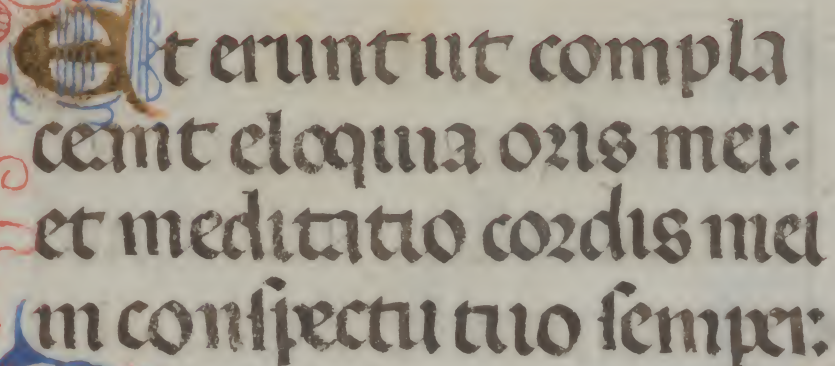 Et erunt ut compla
ceant eloquia oris mei:
et meditatio cordis mei
in conſpectu tuo ſemper: